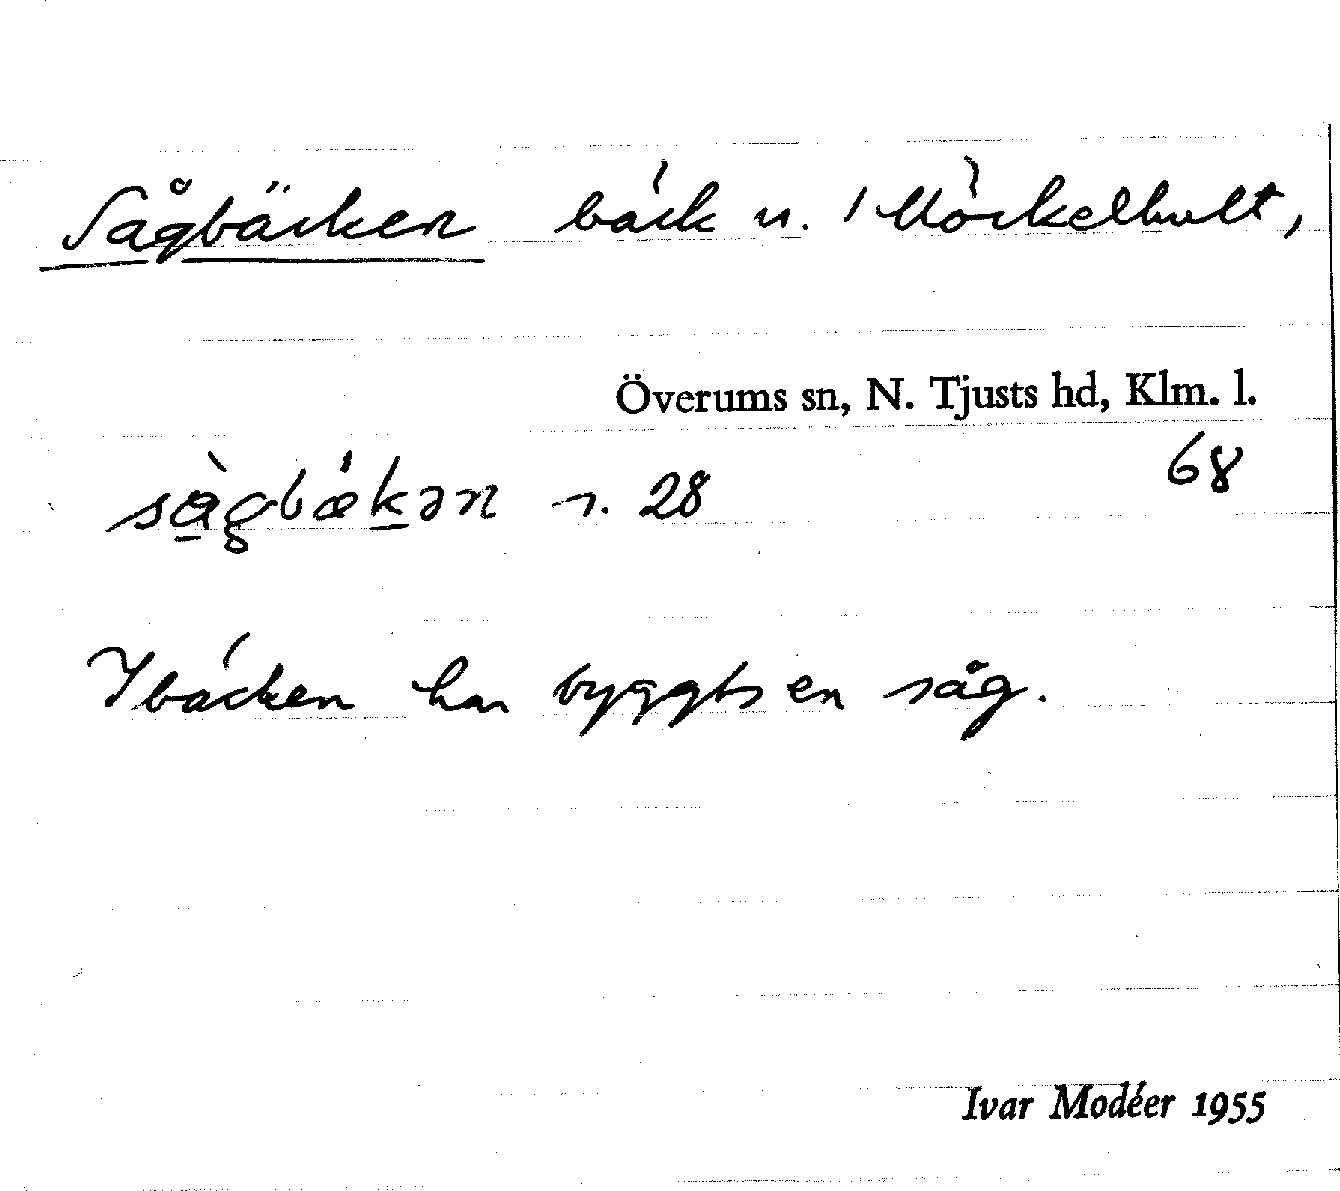 Sågbäcken bäck u. Möckelhult,
Överums sn, N. Tjusts hd, Klm. l.
68
sàgbǽkən s. 28
I bäcken har byggts en såg.
Ivar Modéer 1955